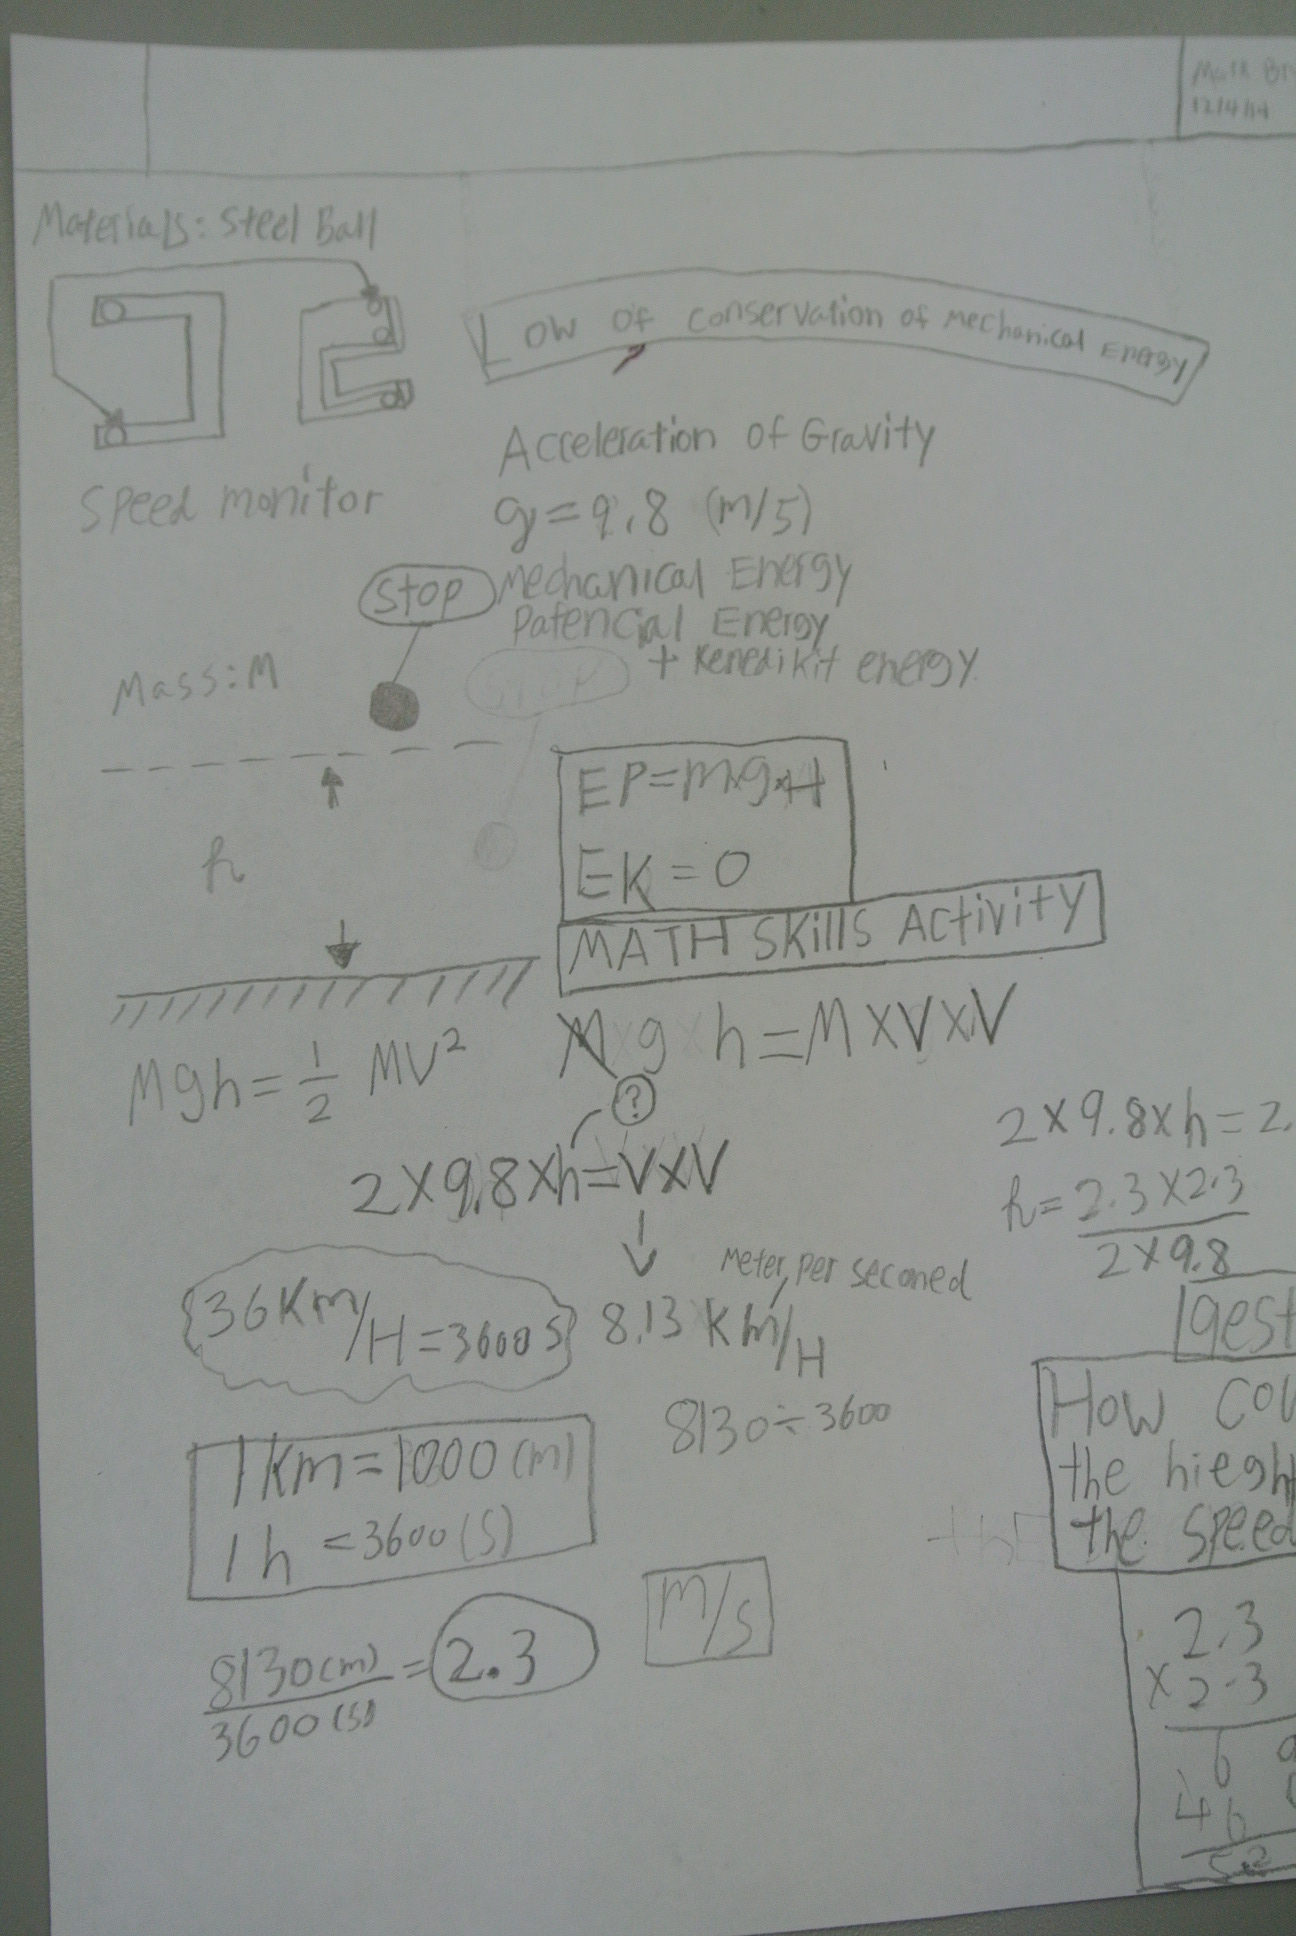 12/4/14
Materials: Steel Ball
Low of conservation of Mechanical Energy
Acceleration of Gravity
Speed monitor
g=9.8 (m/s)
Stop
Mechanical Energy
Patencial Energy
+ Kenedikit energy
STOP
Mass: M
EP=mg×H
EK=0
h
MATH Skills Activity
Mgh=1/2 MV²
M×g×h=M×V×V
?
2×9.8×h=V×V
2×9.8×h=2.
h=2.3×2.3
2×9.8
Meter per seconed
36Km/H=3600s
8.13 Km/H
8130÷3600
1Km=1000(m)
1h=3600(s)
How
the hieght
the speed
m/s
8130(m)
3600(s)
=2.3
2.3
×2.3
6
46
5.2